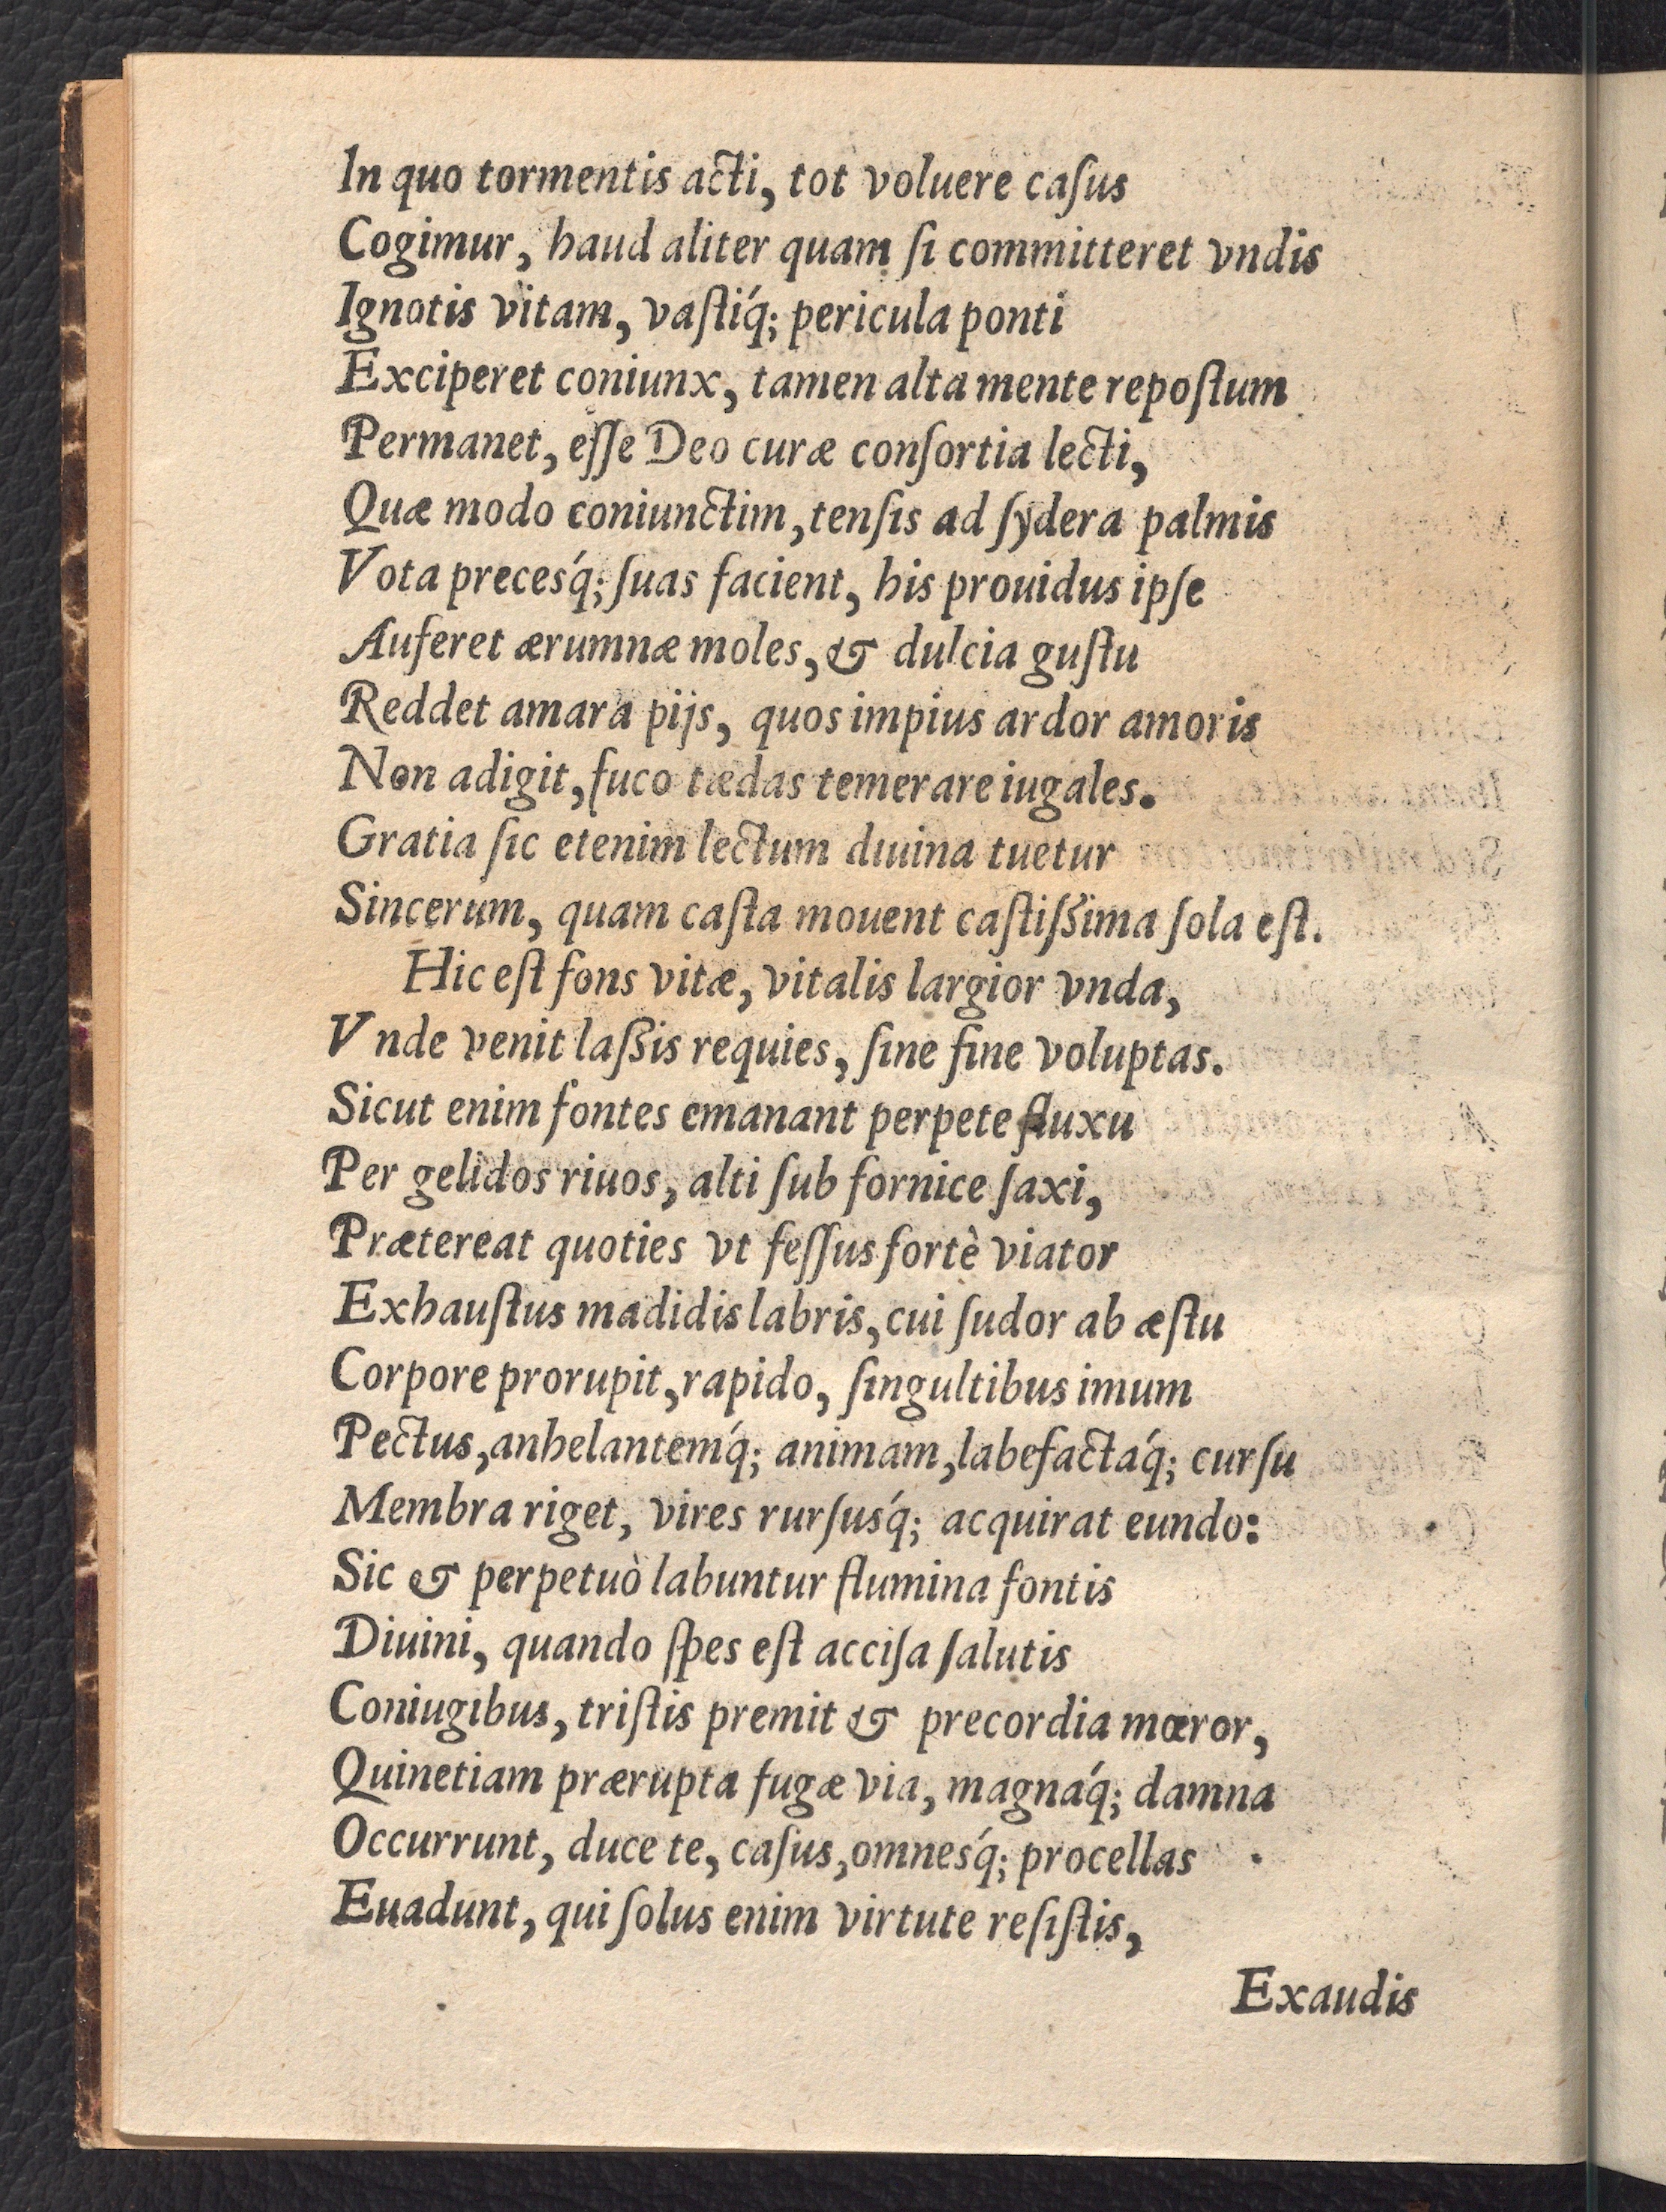 In quo tormentis acti, tot voluere caſus
Cogimur, haud aliter quam ſi committeret vndis
Ignotis vitam, vaſtiq́; pericula ponti
Exciperet coniunx, tamen alta mente repoſtum
Permanet, eſſe Deo curæ conſortia lecti,
Quæ modo coniunctim, tenſis ad ſydera palmis
Vota precesq́; ſuas facient, his prouidus ipſe
Auferet ærumnæ moles, & dulcia guſtu
Reddet amara pijs, quos impius ardor amoris
Non adigit, fuco tædas temerare iugales.
Gratia ſic etenim lectum diuina tuetur
Sincerum, quam caſta mouent caſtiſsima ſola eſt.
Hic eſt fons vitæ, vitalis largior vnda,
Vnde venit laſsis requies, ſine fine voluptas.
Sicut enim fontes emanant perpete fluxu
Per gelidos riuos, alti ſub fornice ſaxi,
Prætereat quoties vt feſſus fortè viator
Exhauſtus madidis labris, cui ſudor ab æſtu
Corpore prorupit, rapido, ſingultibus imum
Pectus, anhelantemq́; animam, labefactaq́; curſu
Membra riget, vires rurſusq́; acquirat eundo:
Sic & perpetuò labuntur flumina fontis
Diuini, quando ſpes eſt acciſa ſalutis
Coniugibus, triſtis premit & precordia mœror,
Quinetiam prærupta fugæ via, magnaq́; damna
Occurrunt, duce te, caſus, omnesq́; procellas
Euadunt, qui ſolus enim virtute reſiſtis,
Exaudis